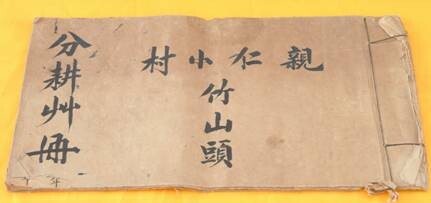 親仁小村
竹山頭
分耕艸冊